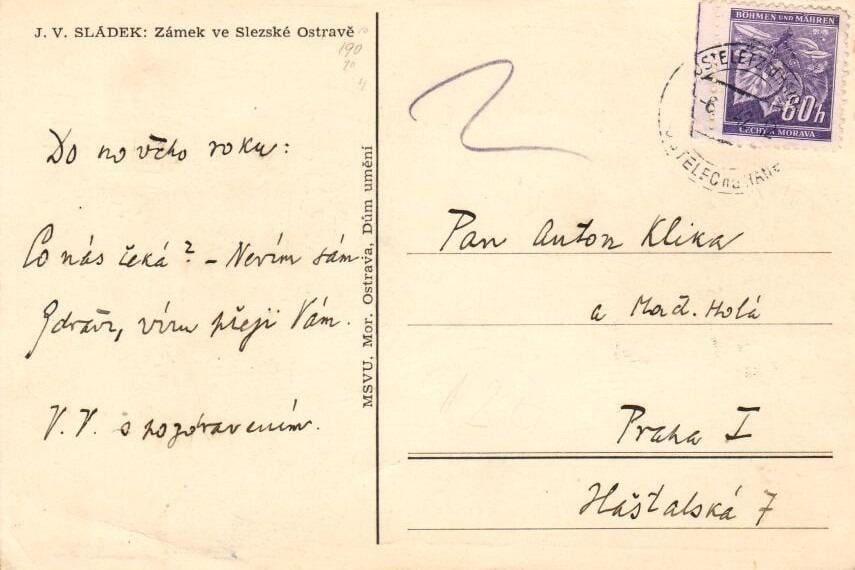 J. V. SLÁDEK: Zámek ve Slezské Ostravě
190
Do nového roku:
Co nás čeká? – Nevím sám.
Zdraví, víru přeji Vám.
V. V. s pozdravením.
MSVU, Mor. Ostrava, Dům umění
BÖHMEN UND MÄHREN
60h
ČECHY A MORAVA
Pan Anton Klika
a Mad. Holá
Praha I
Hášťalská 7